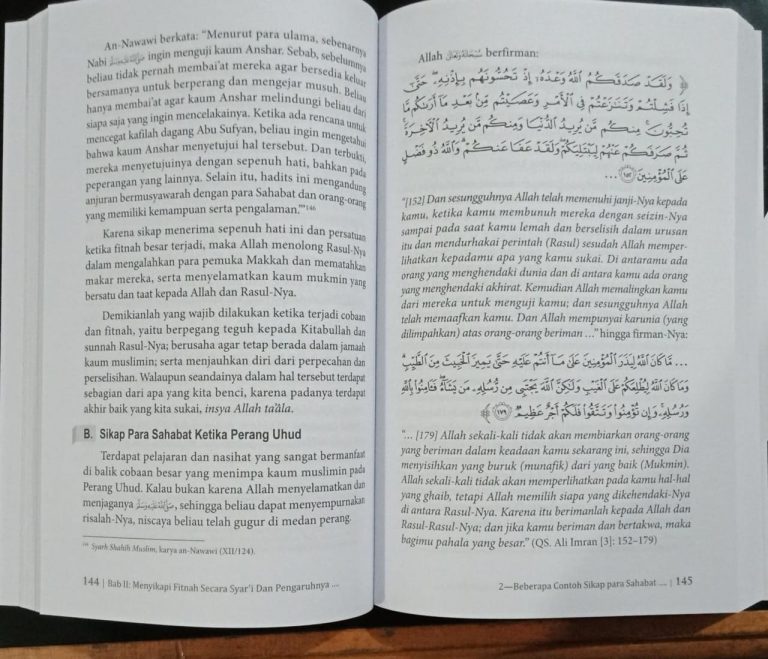 An-Nawawi berkata: “Menurut para ulama, sebenarnya
Nabi ﷺ ingin menguji kaum Anshar. Sebab, sebelumnya
beliau tidak pernah membai'at mereka agar bersedia keluar
bersamanya untuk berperang dan mengejar musuh. Beliau
hanya membai'at agar kaum Anshar melindungi beliau dari
siapa saja yang ingin mencelakainya. Ketika ada rencana untuk
mencegat kafilah dagang Abu Sufyan, beliau ingin mengetahui
bahwa kaum Anshar menyetujui hal tersebut. Dan terbukti,
mereka menyetujuinya dengan sepenuh hati, bahkan pada
peperangan yang lainnya. Selain itu, hadits ini mengandung
anjuran bermusyawarah dengan para Sahabat dan orang-orang
yang memiliki kemampuan serta pengalaman.”¹⁴⁶
Karena sikap menerima sepenuh hati ini dan persatuan
ketika fitnah besar terjadi, maka Allah menolong Rasul-Nya
dalam mengalahkan para pemuka Makkah dan mematahkan
makar mereka, serta menyelamatkan kaum mukmin yang
bersatu dan taat kepada Allah dan Rasul-Nya.
Demikianlah yang wajib dilakukan ketika terjadi cobaan
dan fitnah, yaitu berpegang teguh kepada Kitabullah dan
sunnah Rasul-Nya; berusaha agar tetap berada dalam jamaah
kaum muslimin; serta menjauhkan diri dari perpecahan dan
perselisihan. Walaupun seandainya dalam hal tersebut terdapat
sebagian dari apa yang kita benci, karena padanya terdapat
akhir baik yang kita sukai, insya Allah ta'âla.
B. Sikap Para Sahabat Ketika Perang Uhud
Terdapat pelajaran dan nasihat yang sangat bermanfaat
di balik cobaan besar yang menimpa kaum muslimin pada
Perang Uhud. Kalau bukan karena Allah menyelamatkan dan
menjaganya ﷺ, sehingga beliau dapat menyempurnakan
risalah-Nya, niscaya beliau telah gugur di medan perang.
¹⁴⁶ Syarh Shahih Muslim, karya an-Nawawi (XII/124).
144 | Bab II: Menyikapi Fitnah Secara Syar'i Dan Pengaruhnya ...
Allah سُبْحَانَهُ وَتَعَالَى berfirman:
﴿ وَلَقَدْ صَدَقَكُمُ اللَّهُ وَعْدَهُ إِذْ تَحُسُّونَهُم بِإِذْنِهِ حَتَّى
إِذَا فَشِلْتُمْ وَتَنَازَعْتُمْ فِي الْأَمْرِ وَعَصَيْتُم مِّن بَعْدِ مَا أَرَاكُم مَّا
تُحِبُّونَ مِنكُم مَّن يُرِيدُ الدُّنْيَا وَمِنكُم مَّن يُرِيدُ الْآخِرَةَ
ثُمَّ صَرَفَكُمْ عَنْهُمْ لِيَبْتَلِيَكُمْ وَلَقَدْ عَفَا عَنكُمْ وَاللَّهُ ذُو فَضْلٍ
عَلَى الْمُؤْمِنِينَ ١٥٢ ...
“[152] Dan sesungguhnya Allah telah memenuhi janji-Nya kepada
kamu, ketika kamu membunuh mereka dengan seizin-Nya
sampai pada saat kamu lemah dan berselisih dalam urusan
itu dan mendurhakai perintah (Rasul) sesudah Allah memper-
lihatkan kepadamu apa yang kamu sukai. Di antaramu ada
orang yang menghendaki dunia dan di antara kamu ada orang
yang menghendaki akhirat. Kemudian Allah memalingkan kamu
dari mereka untuk menguji kamu; dan sesungguhnya Allah
telah memaafkan kamu. Dan Allah mempunyai karunia (yang
dilimpahkan) atas orang-orang beriman ...” hingga firman-Nya:
... مَّا كَانَ اللَّهُ لِيَذَرَ الْمُؤْمِنِينَ عَلَى مَا أَنتُمْ عَلَيْهِ حَتَّى يَمِيزَ الْخَبِيثَ مِنَ الطَّيِّبِ
وَمَا كَانَ اللَّهُ لِيُطْلِعَكُمْ عَلَى الْغَيْبِ وَلَكِنَّ اللَّهَ يَجْتَبِي مِن رُّسُلِهِ مَن يَشَاءُ فَآمِنُوا بِاللَّهِ
وَرُسُلِهِ وَإِن تُؤْمِنُوا وَتَتَّقُوا فَلَكُمْ أَجْرٌ عَظِيمٌ ١٧٩ ﴾
“... [179] Allah sekali-kali tidak akan membiarkan orang-orang
yang beriman dalam keadaan kamu sekarang ini, sehingga Dia
menyisihkan yang buruk (munafik) dari yang baik (Mukmin).
Allah sekali-kali tidak akan memperlihatkan pada kamu hal-hal
yang ghaib, tetapi Allah memilih siapa yang dikehendaki-Nya
di antara Rasul-Nya. Karena itu berimanlah kepada Allah dan
Rasul-Rasul-Nya; dan jika kamu beriman dan bertakwa, maka
bagimu pahala yang besar.” (QS. Ali Imran [3]: 152–179)
2—Beberapa Contoh Sikap para Sahabat ... | 145